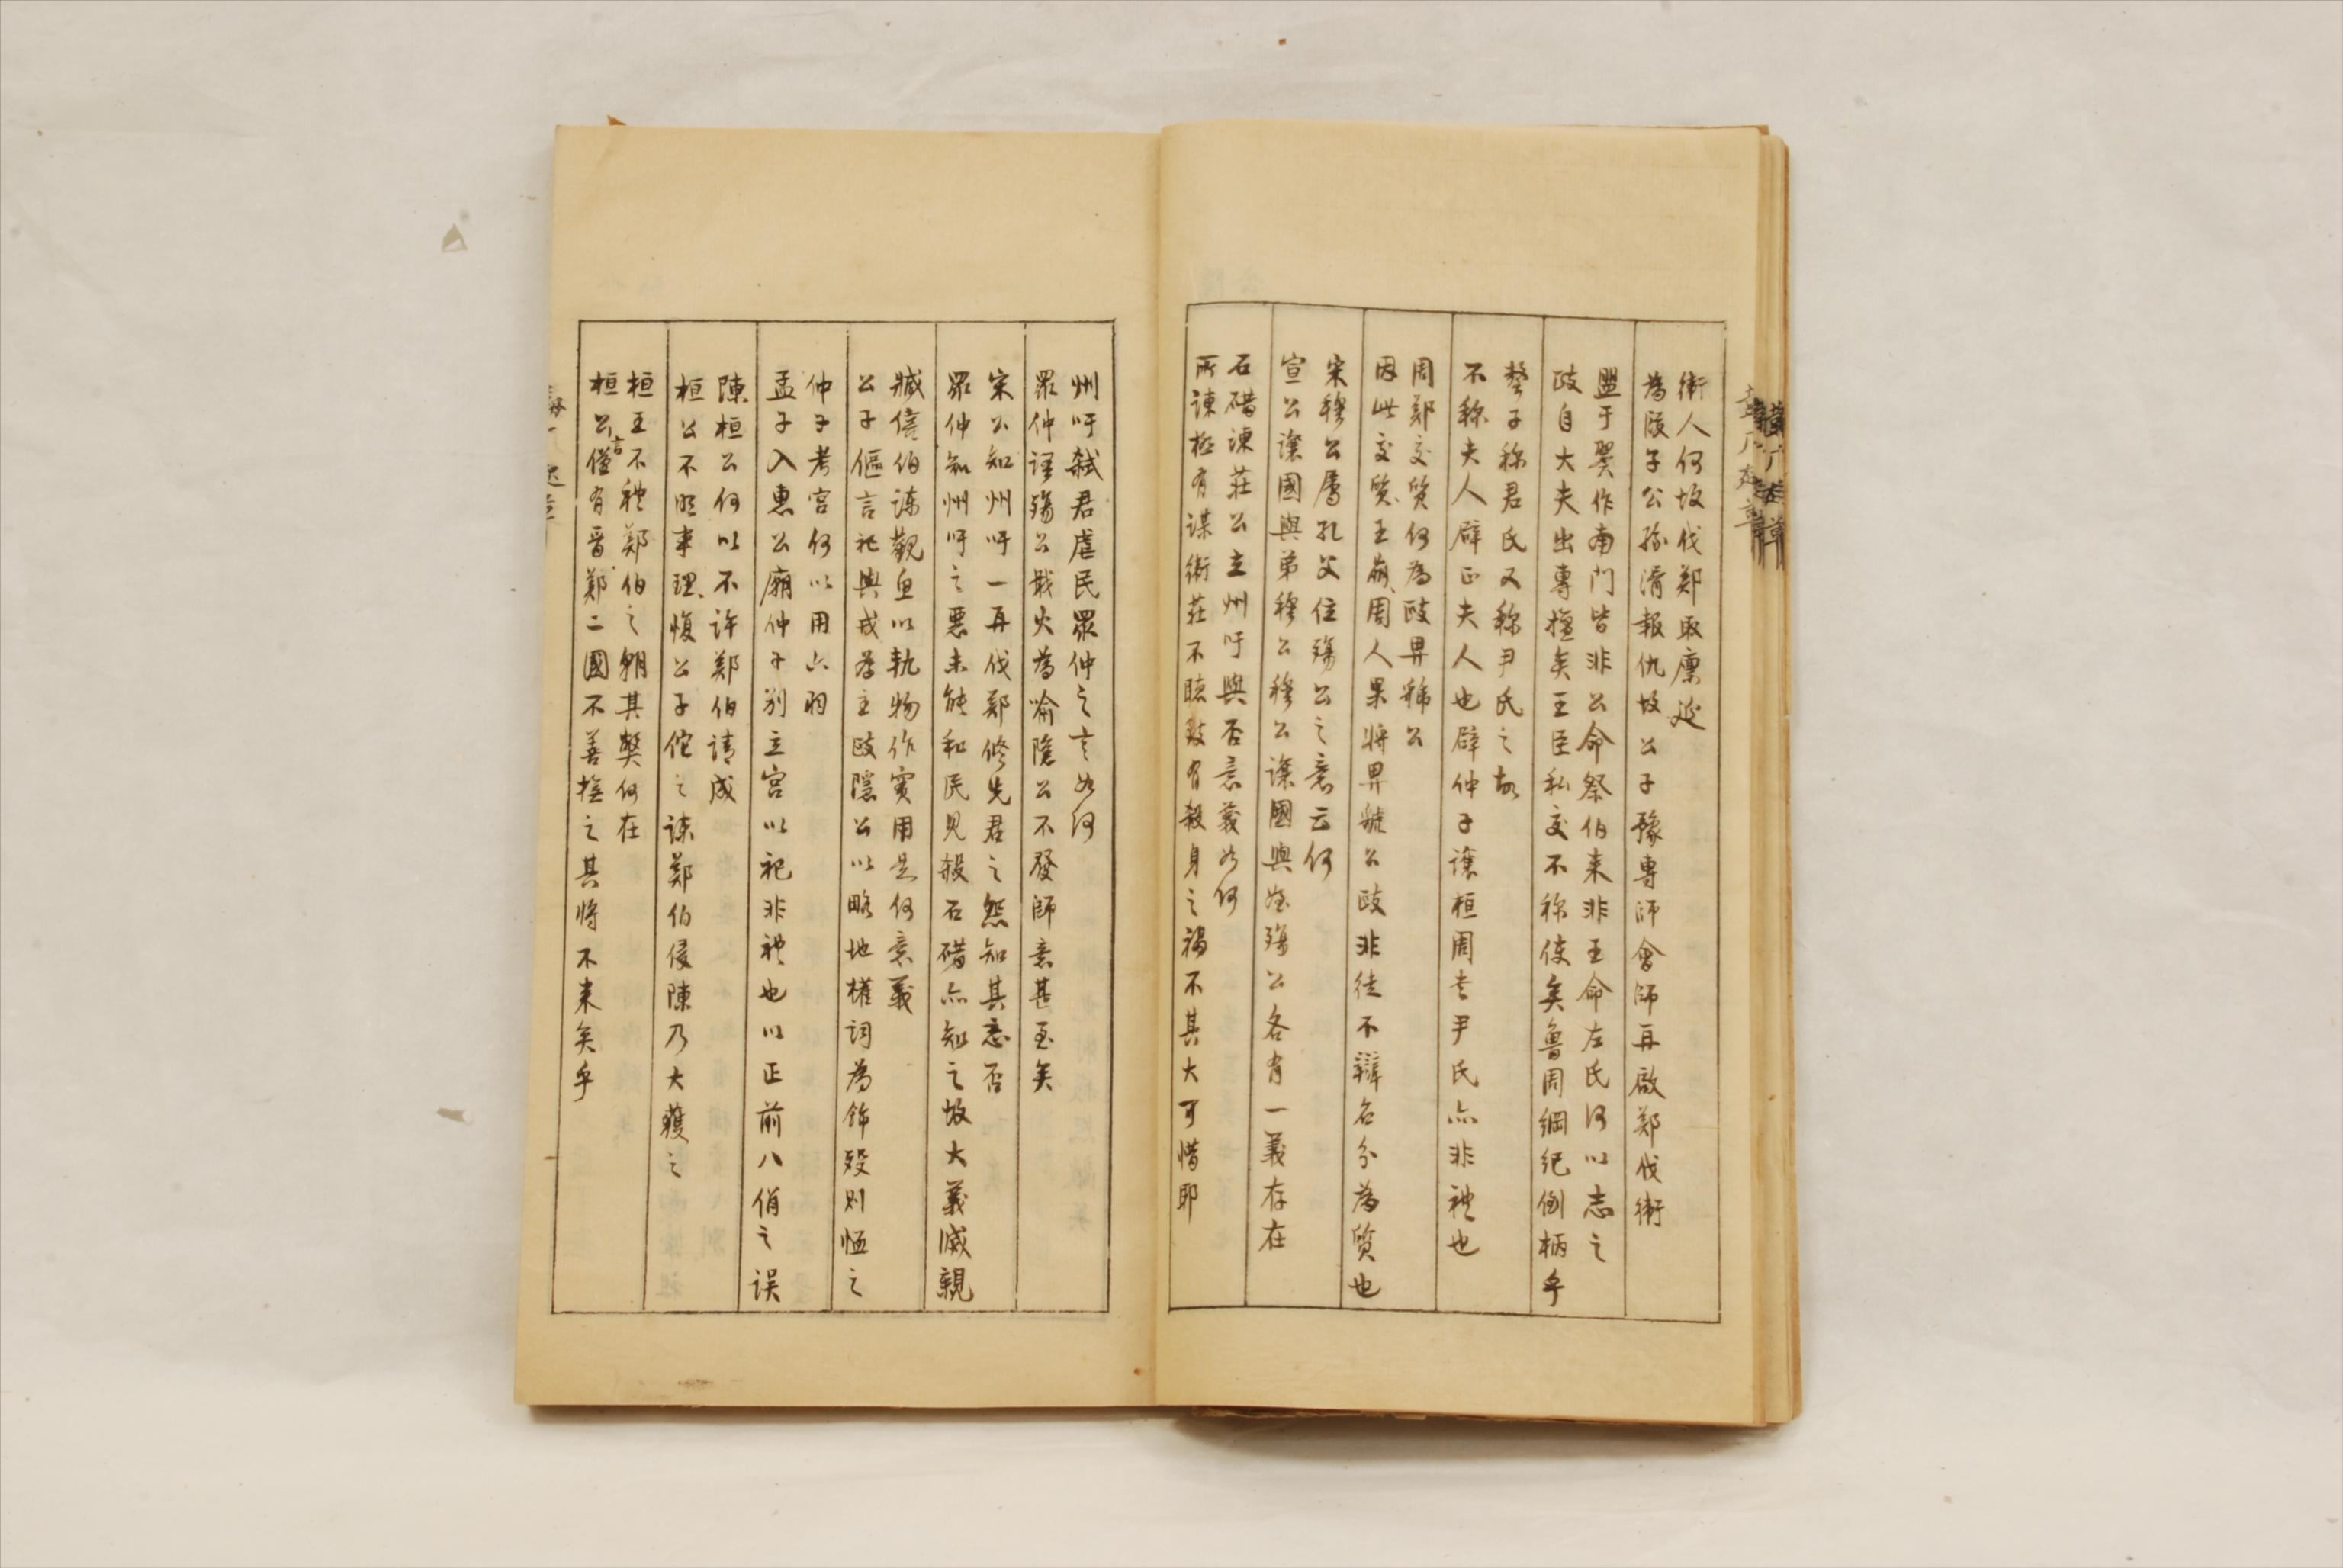 衛人何故伐鄭取廪延
為段子公孫滑報仇故公子豫專師會師再啟鄭伐衛
盟于翼作南门皆非公命祭伯来非王命左氏何以志之
豉自大夫出專擅矣王臣私交不称使矣魯周綱纪倒柄乎
聲子称君氏又称尹氏之故
不称夫人辟正夫人也辟仲子讓桓周書尹氏亦非禮也
周鄭交質何為豉畀虢公
因此交質王崩周人果将畀虢公豉非徒不辯名分為質也
宋穆公屬孔父位殇公之意云何
宣公讓國與弟穆公穆公讓國與姪殇公各有一義存在
石碏諫莊公立州吁與否意義如何
所諫極有謀衛莊不聴致有殺身之禍不其大可惜耶
州吁弑君虐民眾仲之言如何
眾仲謹殇公戢火為喻隐公不發師意甚至矣
宋公知州吁一再伐鄭修先君之怨知其悪否
眾仲知州吁之悪未能和民見殺石碏亦知之故大義滅親
臧僖伯諫觀魚以軌物作实用是何意義
公子傴言祀與戎為主豉隱公以略地權词為飾殁则恤之
仲子考宮何以用六羽
孟子入惠公廟仲子别立宮以祀非禮也以正前八佾之误
陳桓公何以不许鄭伯请成
桓公不明事理愎公子佗之諫鄭伯侵陳乃大獲之
桓王不禮鄭伯之朝其獘何在
桓公言僅有晋鄭二國不善撫之其将不来矣乎